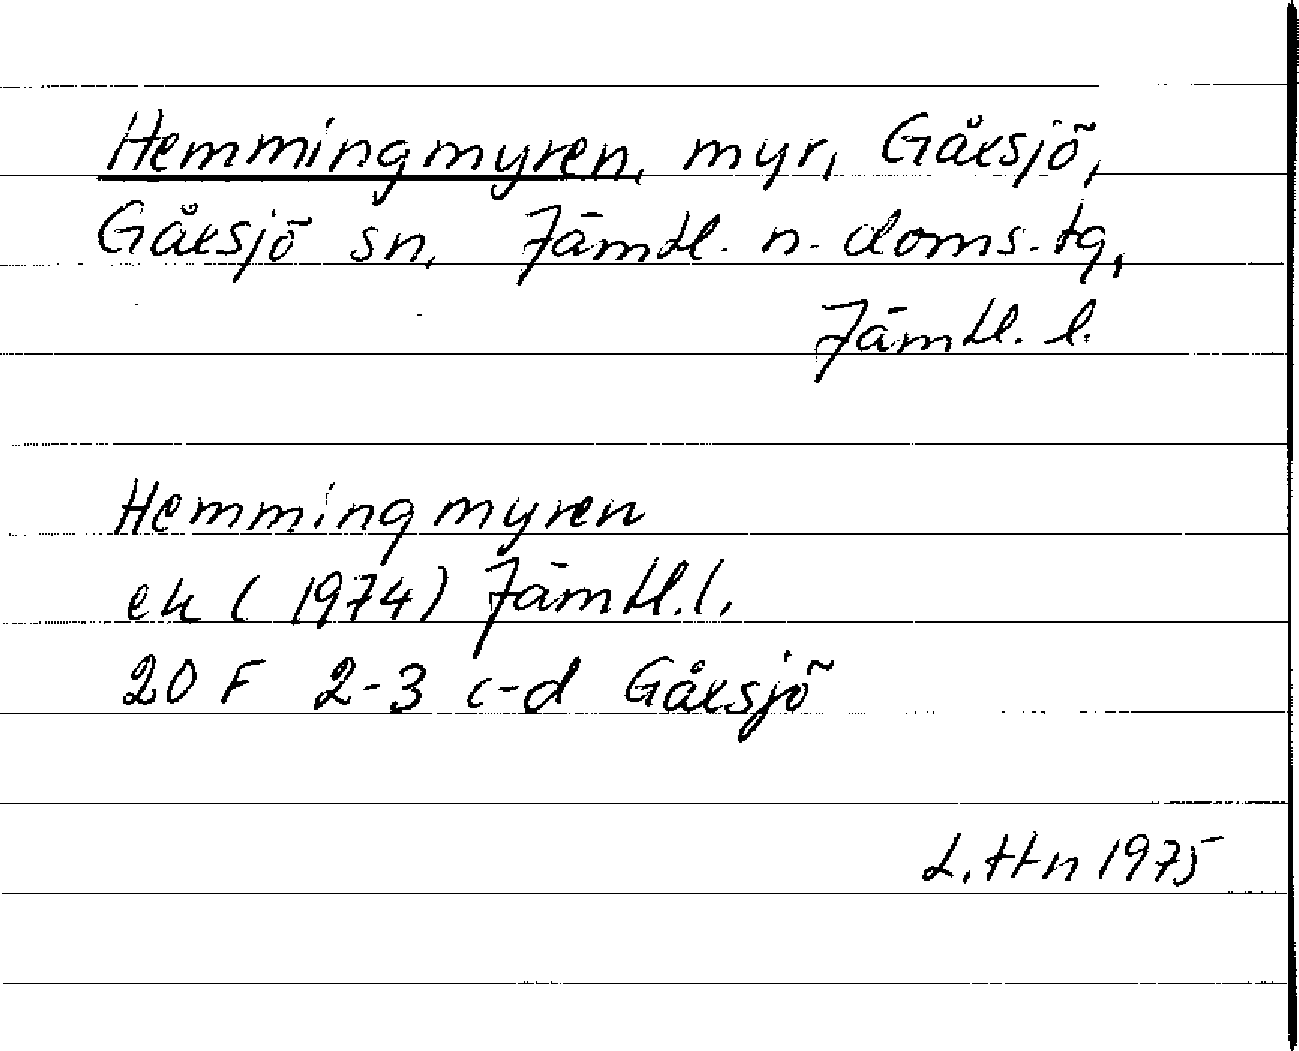 Hemmingmyren, myr, Gåxsjö,
Gåxsjö sn, Jämtl. n. doms. tg,
Jämtl. l.
Hemmingmyren
ek (1974) Jämtl. l.
20 F 2-3 c-d Gåxsjö
L. Hn 1975